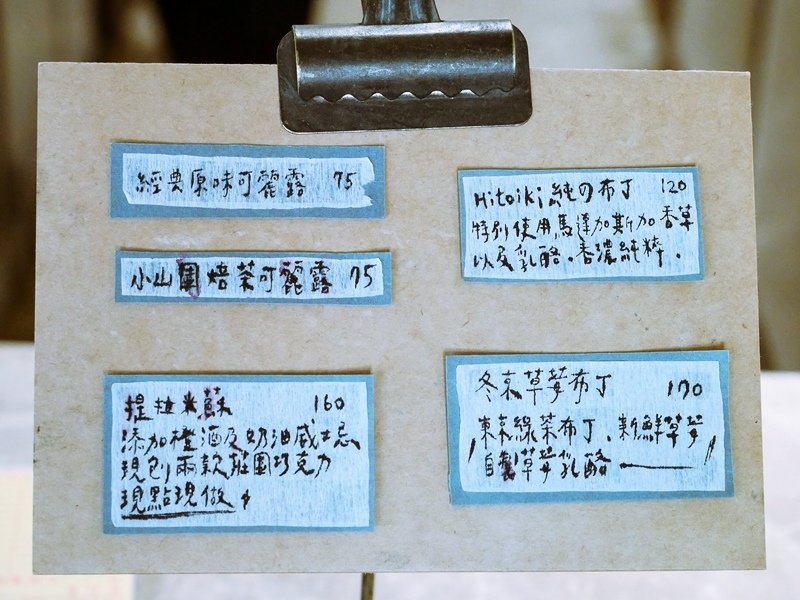 經典原味可麗露 75
小山園焙茶可麗露 75
提拉米蘇 160
添加橙酒及奶油威士忌
現刨兩款莊園巧克力
現點現做
Hitoiki 純の布丁 120
特別使用馬達加斯加香草
以及乳酪。香濃純粹.
冬京草莓布丁 170
東京綠茶布丁、新鮮草莓
自製草莓乳酪